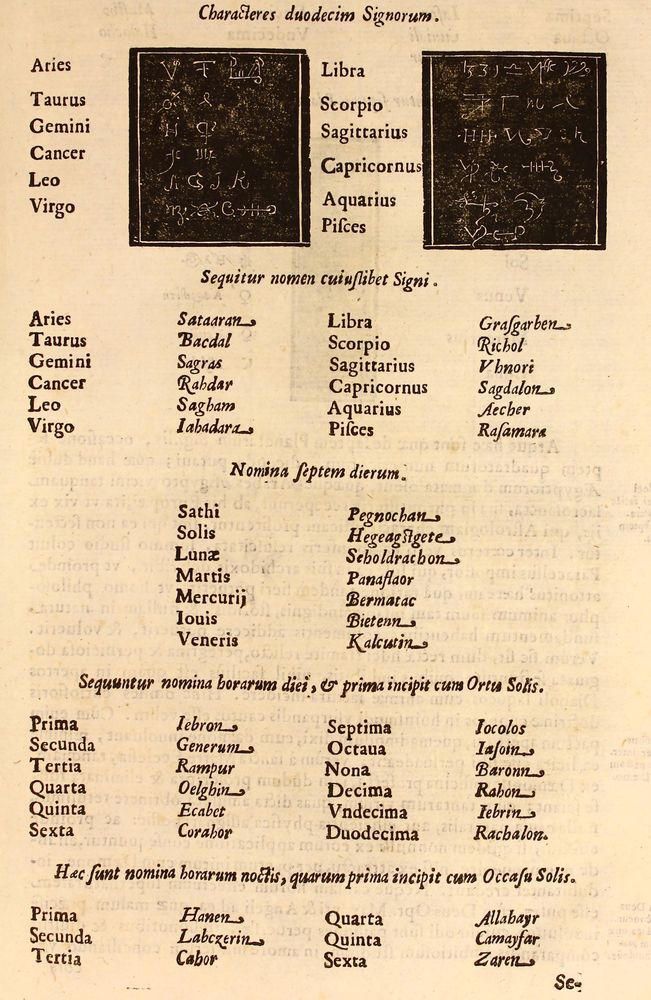 Characteres duodecim Signorum.
Aries
Taurus
Gemini
Cancer
Leo
Virgo
Libra
Scorpio
Sagittarius
Capricornus
Aquarius
Piſces
Sequitur nomen cuiuſlibet Signi.
Aries Sataaran Libra Graſgarben
Taurus Bacdal Scorpio Richol
Gemini Sagras Sagittarius Vhnori
Cancer Rahdar Capricornus Sagdalon
Leo Sagham Aquarius Aecher
Virgo Iahadara Piſces Raſamara
Nomina ſeptem dierum.
Sathi Pegnochan
Solis Hegeagſigete
Lunæ Seholdrachon
Martis Panaflaor
Mercurij Bermatac
Iouis Bietenn
Veneris Kalcutin
Sequuntur nomina horarum diei, & prima incipit cum Ortu Solis.
Prima Iebron Septima Iocolos
Secunda Generum Octaua Iaſoin
Tertia Rampur Nona Baronn
Quarta Oelghin Decima Rahon
Quinta Ecabet Vndecima Iebrin
Sexta Corahor Duodecima Rachalon.
Hæc ſunt nomina horarum noctis, quarum prima incipit cum Occaſu Solis.
Prima Hanen Quarta Allahayr
Secunda Labczerin Quinta Camayfar
Tertia Cahor Sexta Zaren
Se-